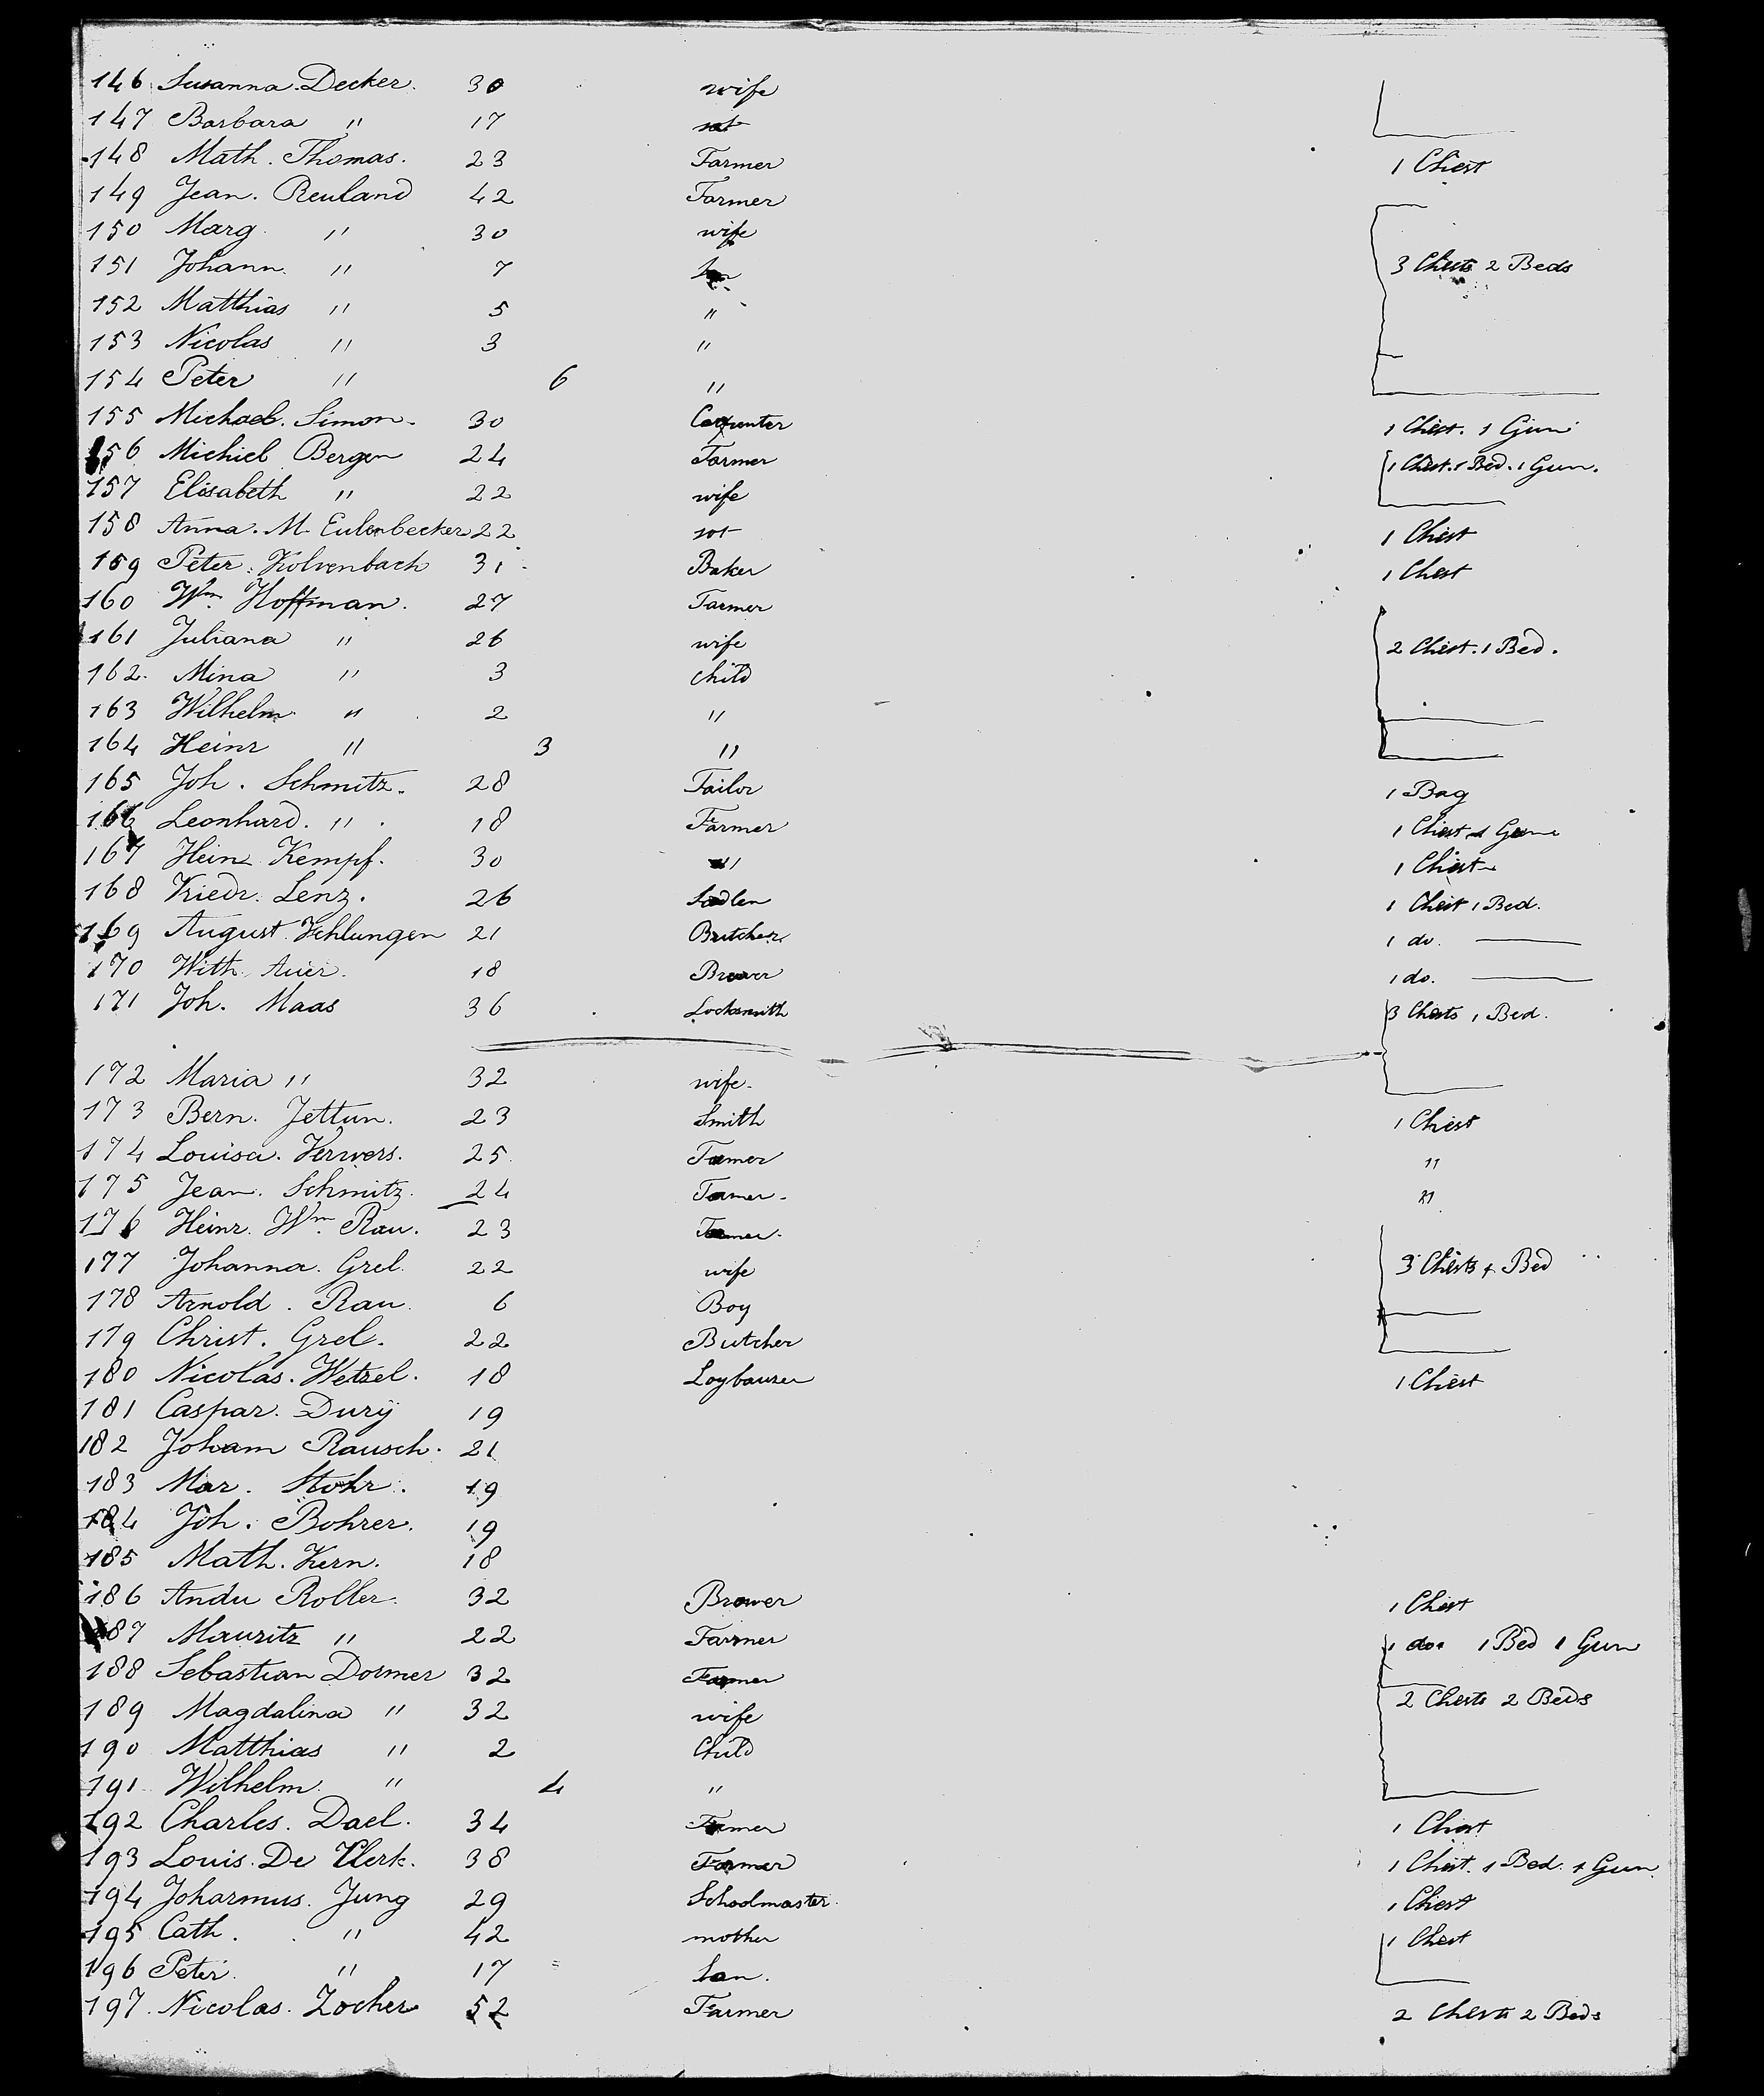 146 Susanna Decker. 30 wife
147 Barbara " 17
148 Math. Thomas. 23 Farmer 1 Chest
149 Jean. Reuland 42 Farmer
150 Marg " 30 wife
151 Johann " 7 3 Chests 2 Beds
152 Matthias " 5 "
153 Nicolas " 3 "
154 Peter " 6 "
155 Michael. Simon. 30 Carpenter 1 Chest. 1 Gun
156 Michiel Bergen 24 Farmer 1 Chest. 1 Bed. 1 Gun.
157 Elisabeth " 22 wife
158 Anna. M. Eulenbecker 22 1 Chest
159 Peter. Kolvenbach 31 Baker 1 Chest
160 Wm. Hoffman. 27 Farmer
161 Juliana " 26 wife 2 Chest. 1 Bed.
162. Mina " 3 child
163 Wilhelm " 2 "
164 Heinr " 3 "
165 Joh. Schmitz. 28 Tailor 1 Bag
166 Leonhard. " 18 Farmer 1 Chest 1 Gun
167 Hein Kempf. 30 " 1 Chest
168 Friedr. Lenz. 26 1 Chest 1 Bed.
169 August. 21 Butcher 1 do.
170 Auer. 18 1 do.
171 Joh. Maas 36 Locksmith 3 Chests 1 Bed.
172 Maria " 32 wife.
173 Bern. Jettun. 23 Smith 1 Chest
174 Louisa. 25 Farmer "
175 Jean. Schmitz. 24 Farmer. "
176 Heinr. Wm. Rau. 23 Farmer.
177 Johanna. Grel. 22 wife 3 Chests 1 Bed
178 Arnold. Rau. 6 Boy
179 Christ. Grel. 22 Butcher
180 Nicolas. Wetzel. 18 1 Chest
181 Caspar. Dury 19
182 Joham Rausch. 21
183 Mar. Stohr. 19
184 Joh. Bohrer. 19
185 Math. Kern. 18
186 Roller. 32 Brower 1 Chest
187 Mauritz " 22 Farmer 1 do. 1 Bed 1 Gun
188 Sebastian Dormer 32 Farmer
189 Magdalina " 32 wife 2 Chests 2 Beds
190 Matthias " 2 Child
191 Wilhelm " 4 "
192 Charles. Dael. 34 Farmer 1 Chest
193 Louis. De Klerk. 38 Farmer 1 Chest. 1 Bed. 1 Gun.
194 Johannus. Jung 29 Schoolmaster. 1 Chest
195 Cath. " 42 mother 1 Chest
196 Peter. " 17 Son.
197. Nicolas. Zocher 52 Farmer 2 Chests 2 Beds